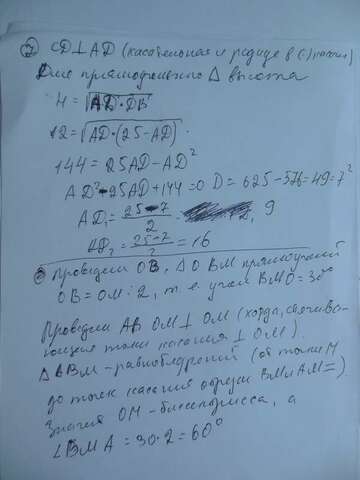 ⑦ CD⊥AD (касательная и радиус в (·) касания)
Для прямоугольного Δ высота
H = √AD·DB
12 = √AD·(25-AD)
144 = 25AD-AD²
AD²-25AD+144=0 D = 625-576=49=7²
AD₁ = 25-7/2 = 9
AD₂ = 25-7/2 = 16
⑧ проведём OB, Δ OBM прямоугольный
OB = OM:2, т.е. угол BMO=30°
Проведём AB OM⊥OM (хорда, стягива-
ющая точки касания ⊥ OM).
ΔABM-равнобедренный (от точки M
до точек касания отрезки BM и AM =)
Значит OM-биссектриса, а
∠BMA = 30·2=60°